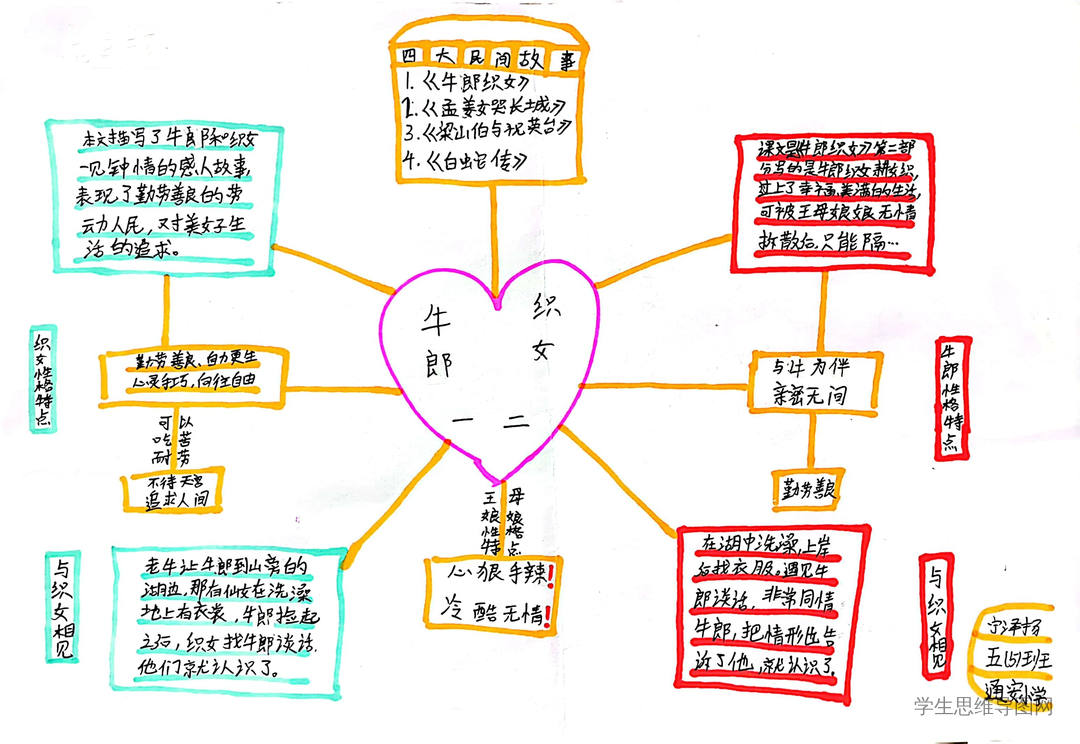 四大民间故事
1.《牛郎织女》
2.《孟姜女哭长城》
3.《梁山伯与祝英台》
4.《白蛇传》
本文描写了牛郎和织女
一见钟情的感人故事,
表现了勤劳善良的劳
动人民,对美好生
活的追求。
课文是《牛郎织女》第二部
分写的是牛郎织女男耕女织,
过上了幸福美满的生活,
可被王母娘娘无情
拆散后,只能隔…
牛郎
织女
一 二
织女性格特点
勤劳善良、自力更生
心灵手巧,向往自由
可以
吃苦
耐劳
不待天宫
追求人间
与牛为伴
亲密无间
勤劳善良
牛郎性格特点
王母娘娘性格特点
心狠手辣!
冷酷无情!
与织女相见
老牛让牛郎到山旁的
湖边,那有仙女在洗澡
地上有衣裳,牛郎捡起
之后,织女找牛郎谈话
他们就认识了。
在湖中洗澡,上岸
后找衣服。遇见牛
郎谈话,非常同情
牛郎,把情形也告
诉了他,就认识了。
与织女相见
宁泽扬
五(4)班
通安小学
学生思维导图网